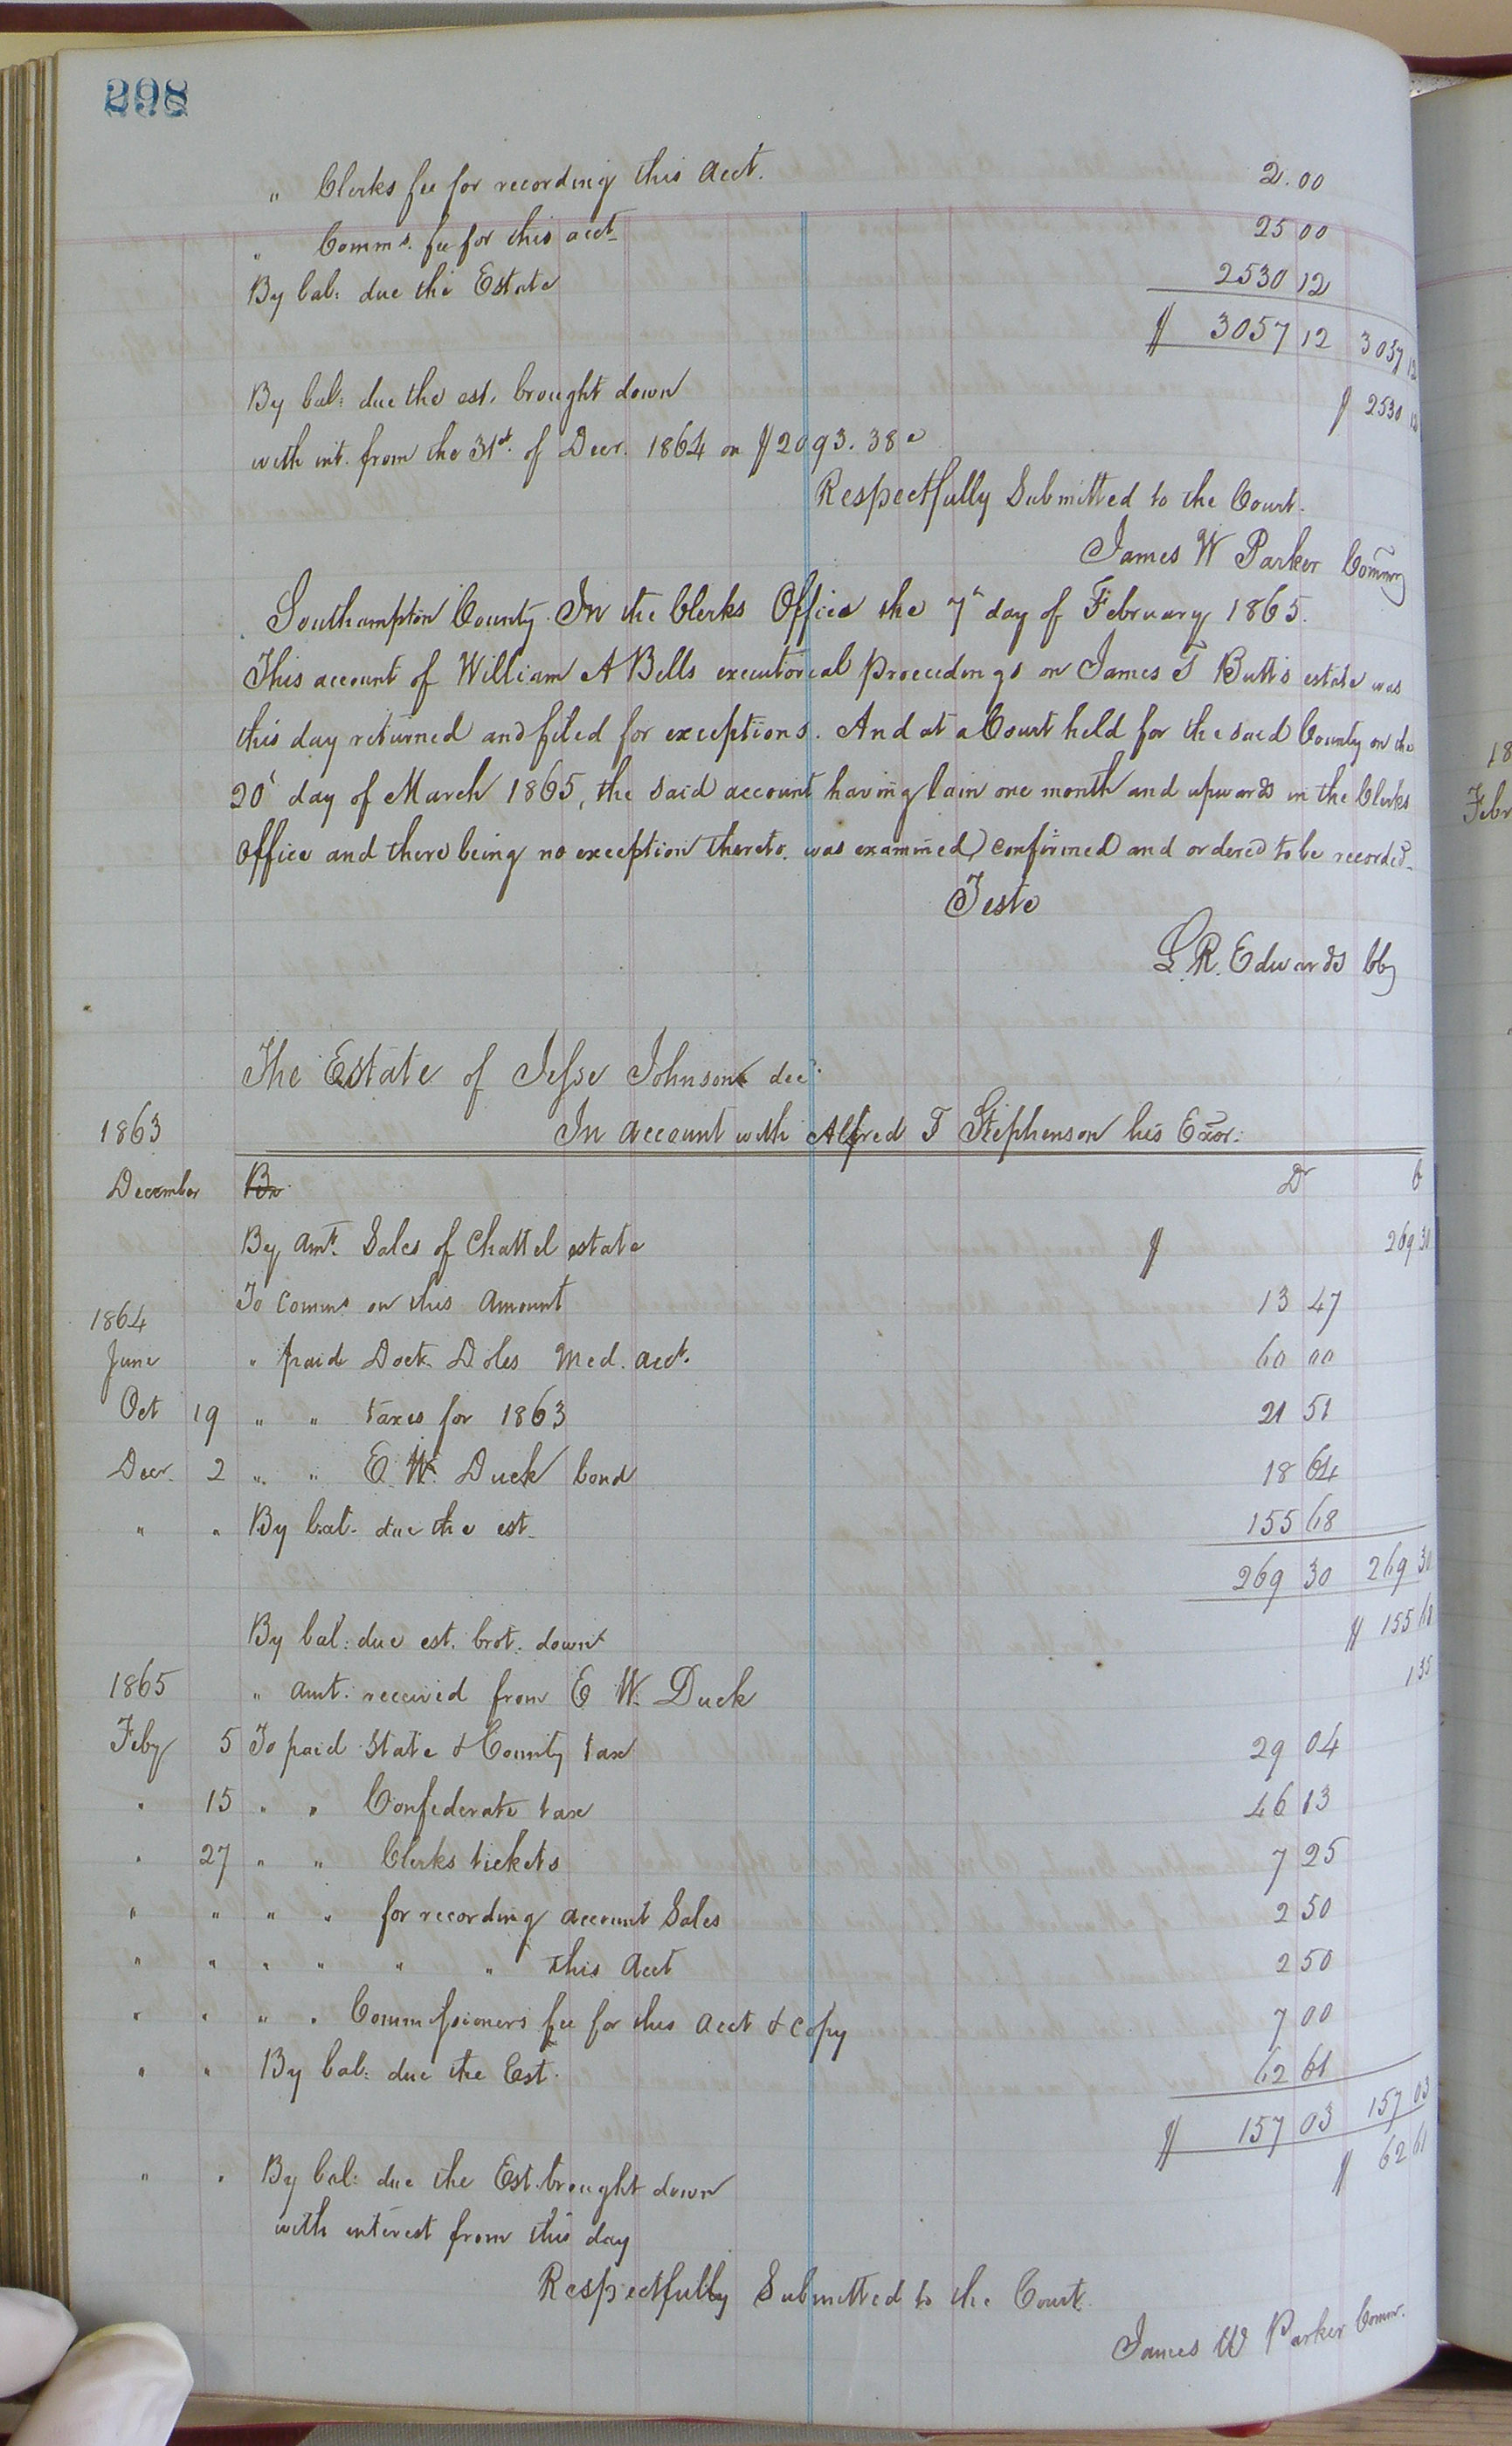 298
" Clerks fee for recording this Acct. 2.00
" Comms. fee for this acct 25 00
By bal: due the Estate 2530 12
$ 3057 12 3057 12
By bal: due the est. brought down $ 2530 12
with int. from the 31st. of Decr. 1864 on $2093.38c
Respectfully Submitted to the Court.
James W Parker Commr
Southampton County. In the Clerks Office the 7th day of February 1865.
This account of William A Bells executorial Proceedings on James T Butts estate was
this day returned and filed for exceptions. And at a Court held for the said County on the
20th day of March 1865, the said account having lain one month and upwards in the Clerks
Office and there being no exception thereto, was examined, confirmed and ordered to be recorded.
Teste
L. R. Edwards Clk
The Estate of Jesse Johnson dec'd
1863 In account with Alfred T Stephenson his Exor.
December By Dr Cr
By amt. Sales of Chattel estate $ 269 30
To Comms on this Amount 13 47
1864
June " paid Doct. Doles Med. acct. 60 00
Oct 19 " " taxes for 1863 21 51
Decr. 2 " " E. W. Duck bond 18 64
" " By bal. due the est. 155 68
269 30 269 30
By bal: due est. brot. down $ 155 68
1865 " amt. received from E W. Duck 1 35
Feby 5 To paid State & County tax 29 04
" 15 " " Confederate tax 46 13
" 27 " " Clerks tickets 7 25
" " " " for recording account Sales 2 50
" " " " " " this Acct 2 50
" " " " Commissioners fee for this Acct & Copy 7 00
" " By bal: due the Est. 62 61
$ 157 03 157 03
" " By bal: due the Est. brought down $ 62 61
with interest from this day
Respectfully Submitted to the Court.
James W Parker Commr.
18
Febr